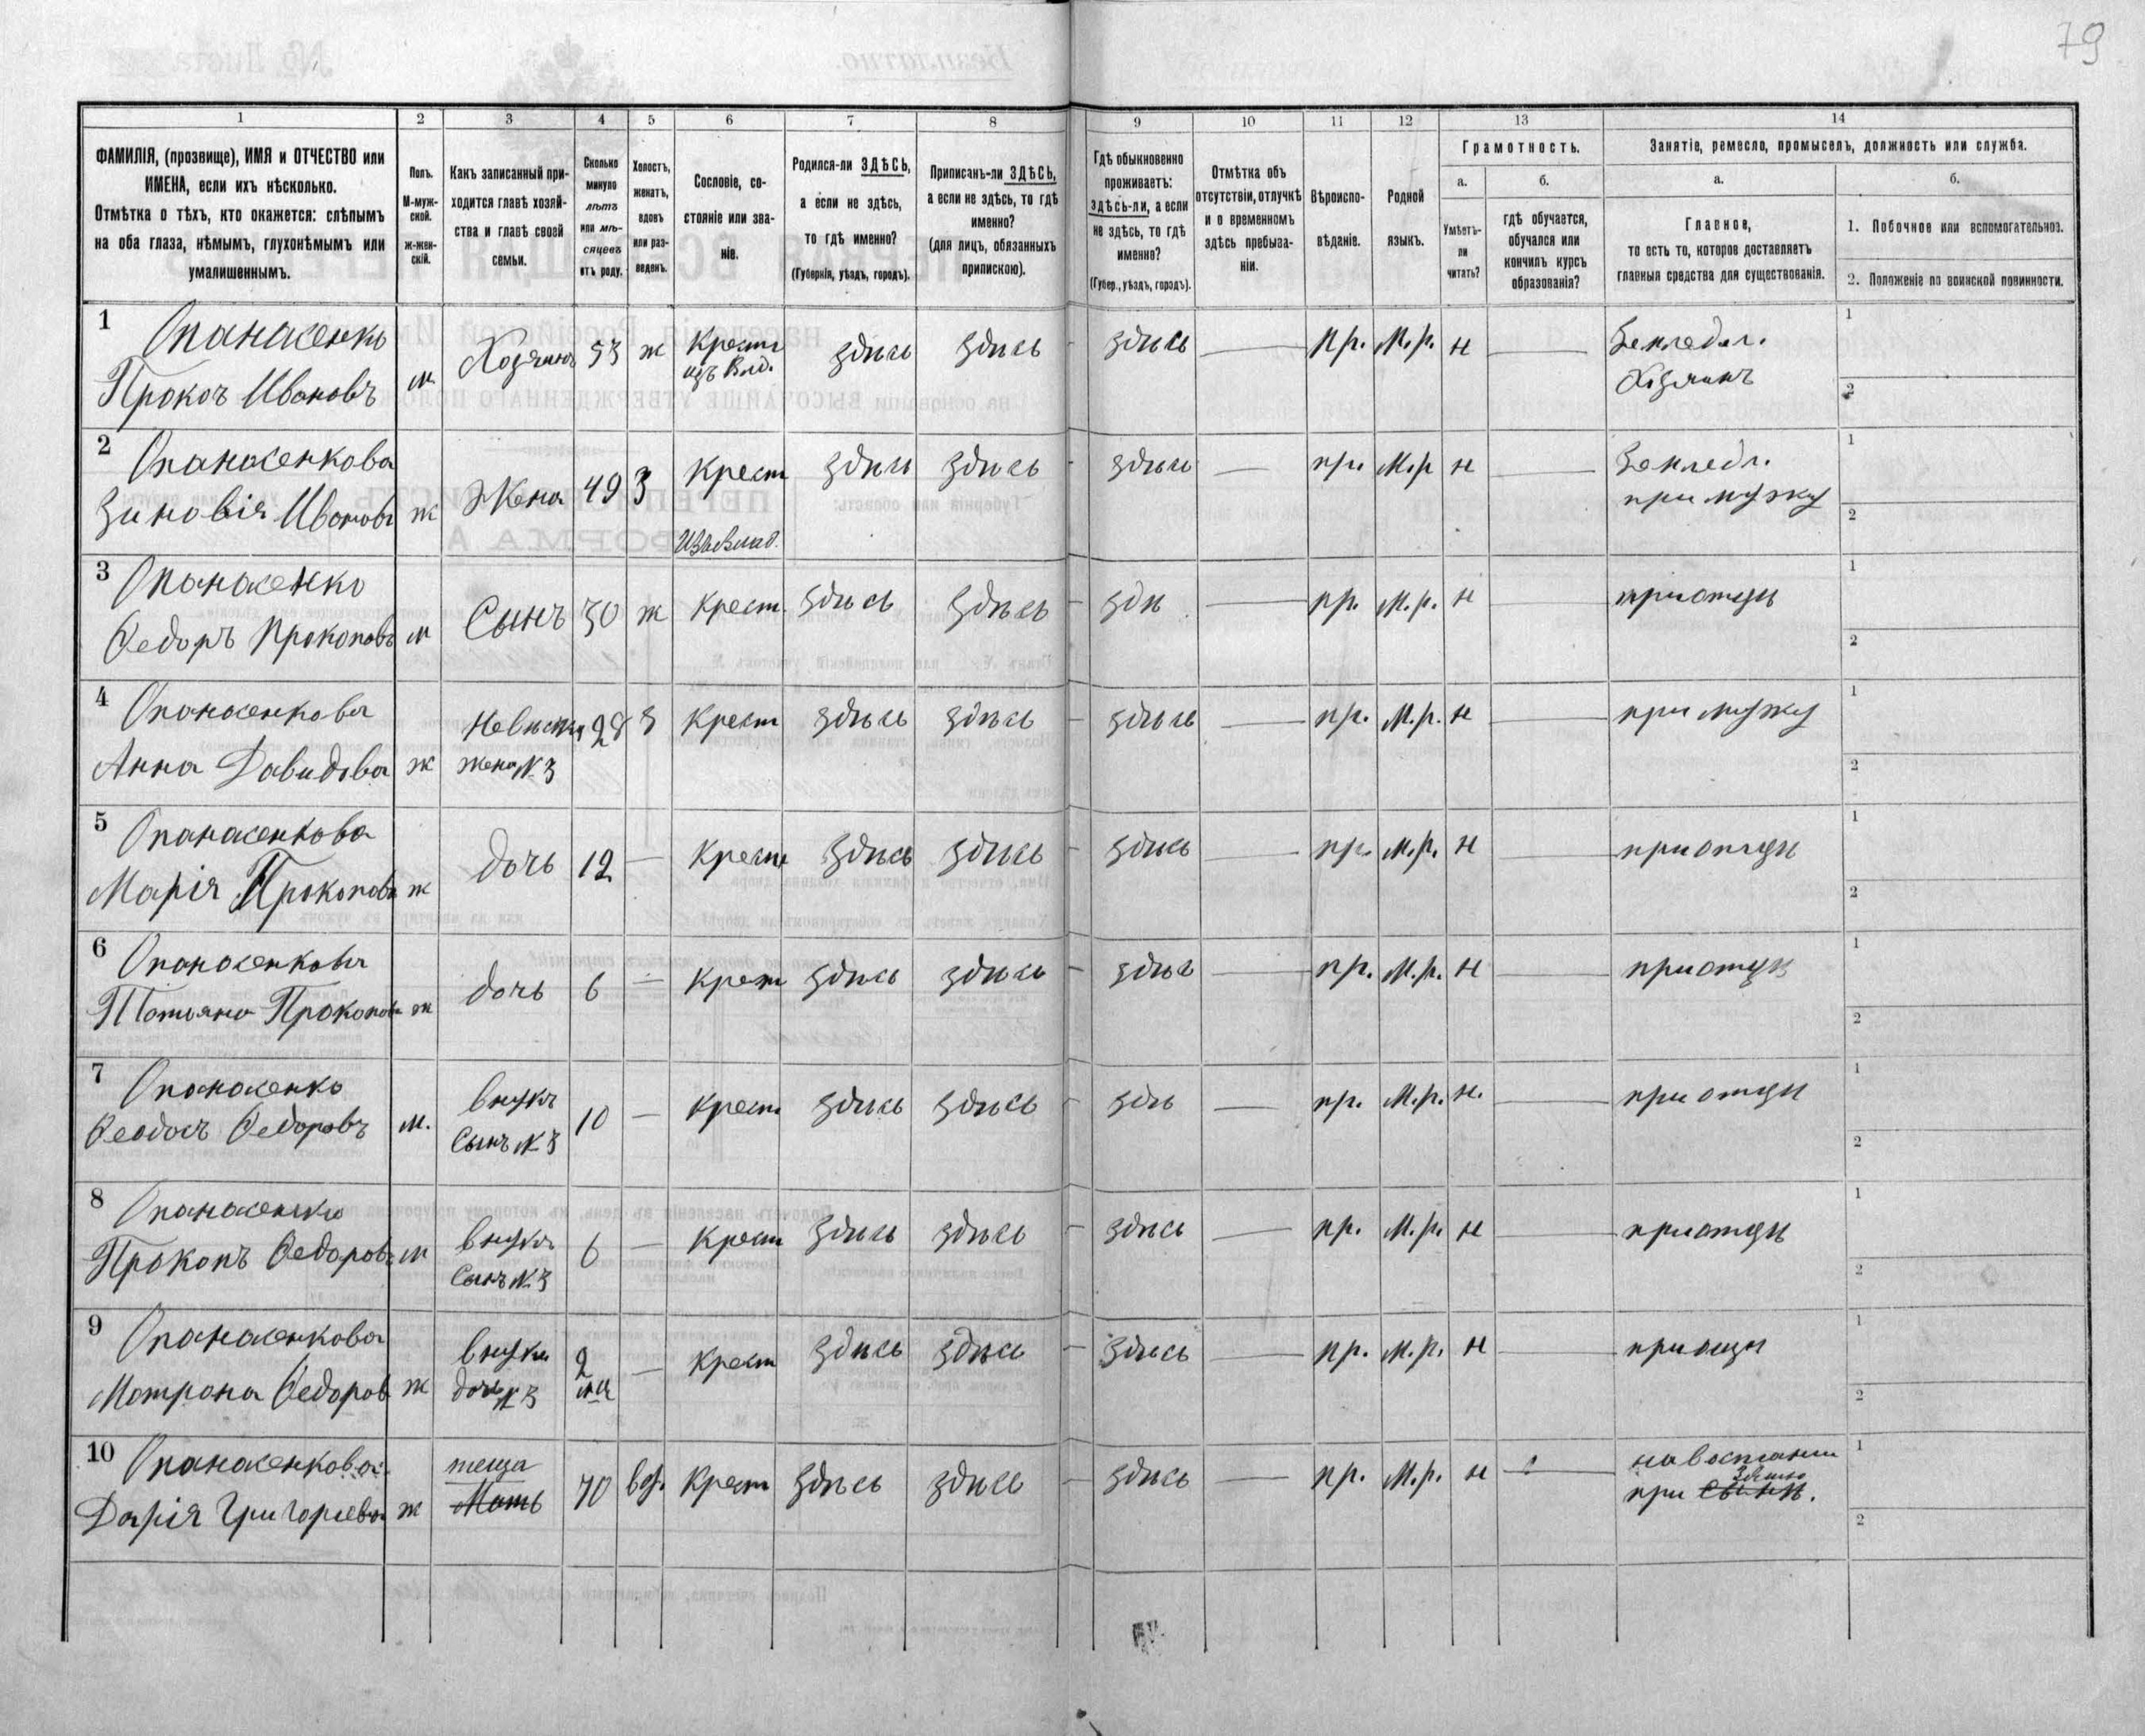 79
1 2 3 4 5 6 7 8 9 10 11 12 13 14
ФАМИЛІЯ, (прозвище), ИМЯ и ОТЧЕСТВО или
ИМЕНА, если ихъ нѣсколько.
Отмѣтка о тѣхъ, кто окажется: слѣпымъ
на оба глаза, нѣмымъ, глухонѣмымъ или
умалишеннымъ.
Полъ.
М-муж-
ской.
ж-жен-
скій.
Какъ записанный при-
ходится главѣ хозяй-
ства и главѣ своей
семьи.
Сколько
минуло
лѣтъ
или мѣ-
сяцевъ
отъ роду.
Холостъ,
женатъ,
вдовъ
или раз-
веденъ.
Сословіе, со-
стояніе или зва-
ніе.
Родился-ли ЗДѢСЬ,
а если не здѣсь,
то гдѣ именно?
(Губернія, уѣздъ, городъ).
Приписанъ-ли ЗДѢСЬ,
а если не здѣсь, то гдѣ
именно?
(для лицъ, обязанныхъ
припискою).
Гдѣ обыкновенно
проживаетъ:
здѣсь-ли, а если
не здѣсь, то гдѣ
именно?
(Губер., уѣздъ, городъ).
Отмѣтка объ
отсутствіи, отлучкѣ
и о временномъ
здѣсь пребыва-
ніи.
Вѣроиспо-
вѣданіе.
Родной
языкъ.
Грамотность.
а.
Умѣетъ-
ли
читать?
б.
гдѣ обучается,
обучался или
кончилъ курсъ
образованія?
Занятіе, ремесло, промыселъ, должность или служба.
а.
Главное,
то есть то, которое доставляетъ
главныя средства для существованія.
б.
1. Побочное или вспомогательное.
2. Положеніе по воинской повинности.
1 Опанасенко Хозяинъ 53 ж Крест здѣсь здѣсь здѣсь — пр. М.р. н — Земледел. 1
Прокоп Ивановъ м. изъ Влд. Хозяинъ 2
2 Опанасенкова Жена 49 З Крест здѣсь здѣсь здѣсь — пр. М.р н — Земледл. 1
Зиновія Иванов ж Изъ Влад. при мужу 2
3 Опанасенко Сынъ 30 ж Крест. здѣсь здѣсь здѣ — пр. М.р. н — при отцѣ 1
Ѳедоръ Прокопов м 2
4 Опанасенкова Невѣстка 28 з Крест здѣсь здѣсь здѣсь — пр. М.р. н — при мужу 1
Анна Давидова ж жена № 3 2
5 Опанасенкова дочь 12 — Крест здѣсь здѣсь здѣсь — пр. М.р. н — при отцѣ 1
Марія Прокопова ж 2
6 Опанасенкова дочь 6 — Крест здѣсь здѣсь здѣс — пр. М.р. н — при отцѣ 1
Татьяна Прокопов ж 2
7 Опанасенко внукъ 10 — Крест здѣсь здѣсь здѣ — пр. М.р. н. — при отцѣ 1
Ѳеодос Ѳедоровъ м. Сынъ № 3 2
8 Опанасенко внукъ 6 — Крест здѣсь здѣсь здѣсь — пр. М.р. н — при отцѣ 1
Прокопъ Ѳедоров м Сынъ № 3 2
9 Опанасенкова внука 2 — Крест здѣсь здѣсь здѣсь — пр. М.р. н — при отцѣ 1
Мотрона Ѳедоров ж дочь № 3 мц 2
10 Опанасенкова теща 70 вд. Крест здѣсь здѣсь здѣсь — пр. М.р. н — 1
Дарія Григорьева ж Мать при Зятю сынѣ. 2